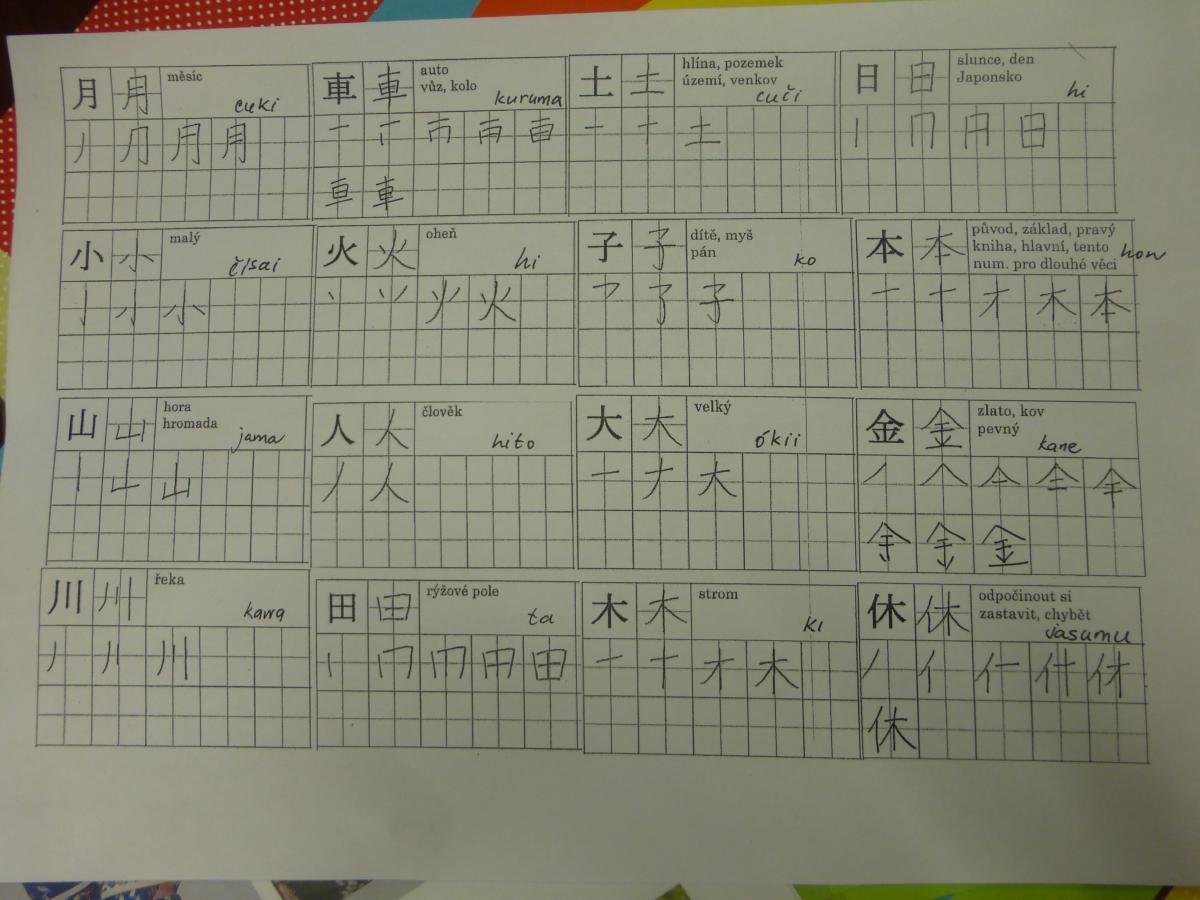 月 月 měsíc
cuki
丿 冂 月 月
車 車 auto
vůz, kolo
kuruma
車 車
土 土 hlína, pozemek
území, venkov
cuči
一 十 土
日 日 slunce, den
Japonsko
hi
丨 冂 日
小 小 malý
čísai
亅 小
火 火 oheň
hi
丶 火
子 子 dítě, myš
pán
ko
了 子
本 本 původ, základ, pravý
kniha, hlavní, tento
num. pro dlouhé věci
hon
一 十 才 木 本
山 山 hora
hromada
jama
丨 山
人 人 člověk
hito
丿 人
大 大 velký
ókii
一 ナ 大
金 金 zlato, kov
pevný
kane
金
川 川 řeka
kawa
丿 川
田 田 rýžové pole
ta
丨 冂 田
木 木 strom
ki
一 十 才 木
休 休 odpočinout si
zastavit, chybět
jasumu
丿 亻 什
休